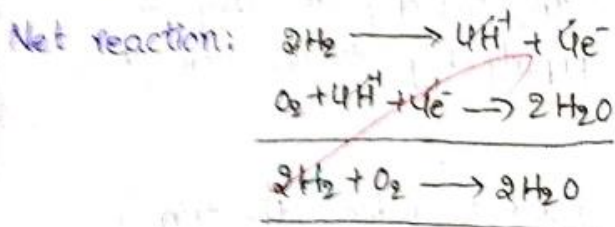 Net reaction: 2H₂ ⟶ 4H⁺ + 4e⁻
O₂ + 4H⁺ + 4e⁻ ⟶ 2H₂O
2H₂ + O₂ ⟶ 2H₂O